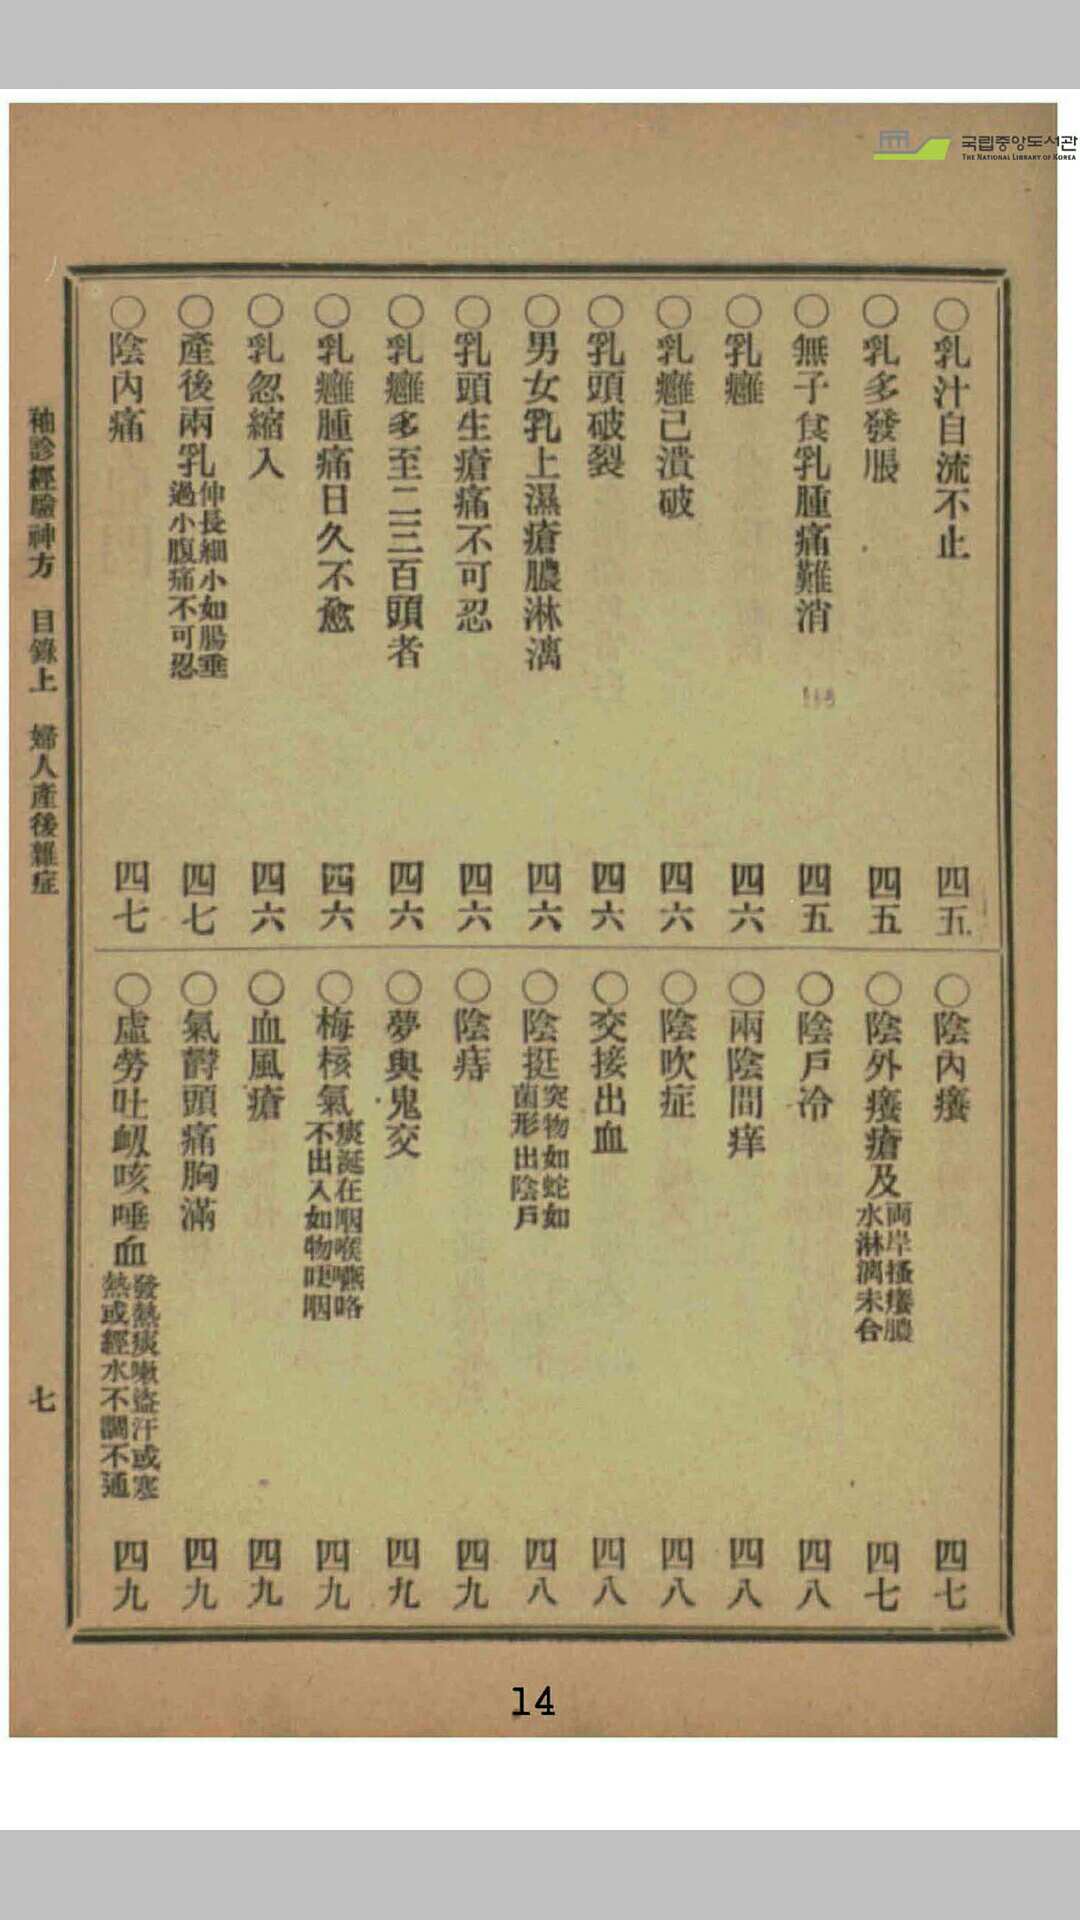 국립중앙도서관
THE NATIONAL LIBRARY OF KOREA
○乳汁自流不止 四五
○乳多發脹 四五
○無子食乳腫痛難消 四五
○乳癰 四六
○乳癰已潰破 四六
○乳頭破裂 四六
○男女乳上濕瘡膿淋漓 四六
○乳頭生瘡痛不可忍 四六
○乳癰多至二三百頭者 四六
○乳癰腫痛日久不愈 四六
○乳忽縮入 四六
○產後兩乳伸長細小如腸垂過小腹痛不可忍 四七
○陰內痛 四七
○陰內癢 四七
○陰外癢瘡及兩岸搔癢膿水淋漓未合 四七
○陰戶冷 四八
○兩陰間痒 四八
○陰吹症 四八
○交接出血 四八
○陰挺突物如蛇如菌形出陰戶 四八
○陰痔 四九
○夢與鬼交 四九
○梅核氣痰涎在咽喉嚥咯不出入如物哽咽 四九
○血風瘡 四九
○氣欝頭痛胸滿 四九
○虛勞吐衂咳唾血發熱痰嗽盜汗或寒熱或經水不調不通 四九
袖診經驗神方 目錄上 婦人產後雜症 七
14